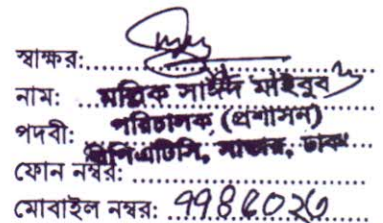 স্বাক্ষর:
নাম: মল্লিক সাঈদ মাহবুব
পদবী: পরিচালক (প্রশাসন)
বিপিএটিসি, সাভার, ঢাকা
ফোন নম্বর:
মোবাইল নম্বর: